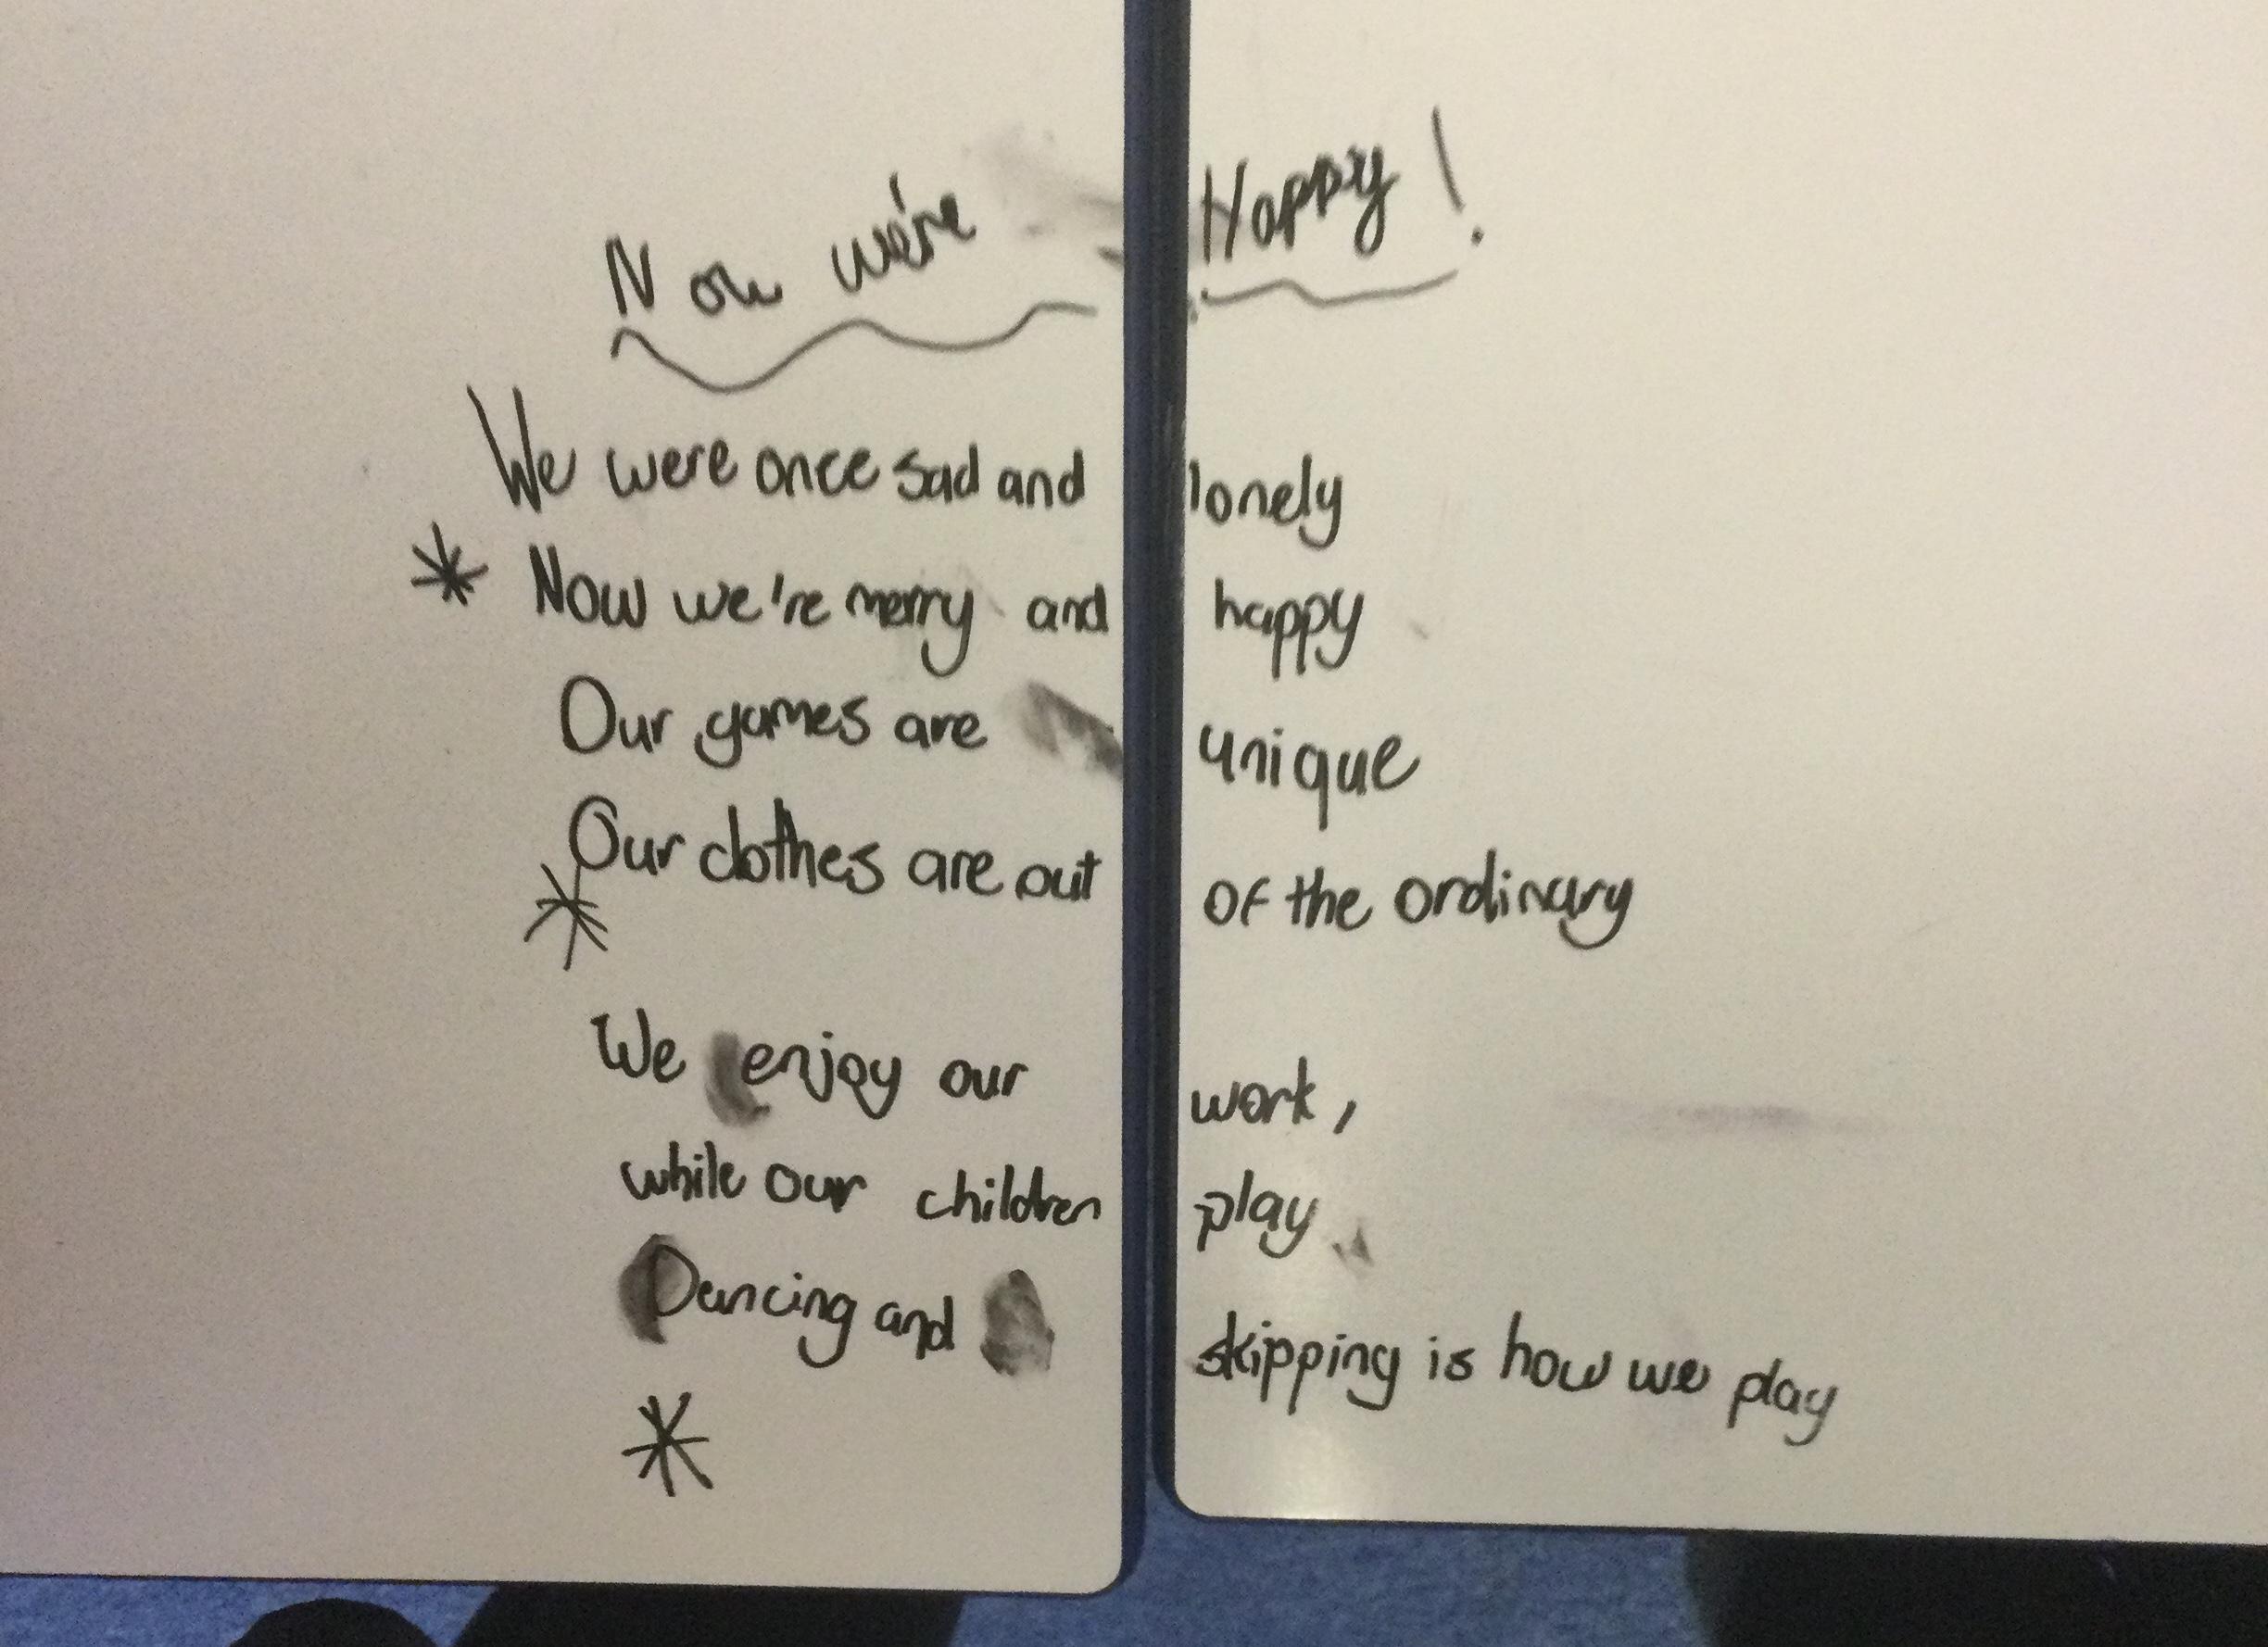 Now we're Happy!
We were once sad and lonely
* Now we're merry and happy
Our games are unique
Our clothes are out of the ordinary
*
We enjoy our work,
while our children play
Dancing and skipping is how we play
*